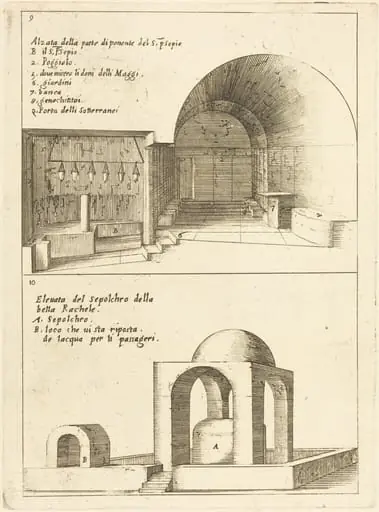 9
Alzata della parte di ponente del S. pSepio
B il S. pSepio.
2. Poggiolo.
3. doue misero li doni delli Maggi.
6. giardini
7. banca
8. genochiatoi
9. Porta delli Sotterranei
B
6
7
10
Eleuata del Sepolchro della
bella Rachele.
A. Sepolchro.
B. loco che ui sta riposta
de lacqua per li passageri.
B
A